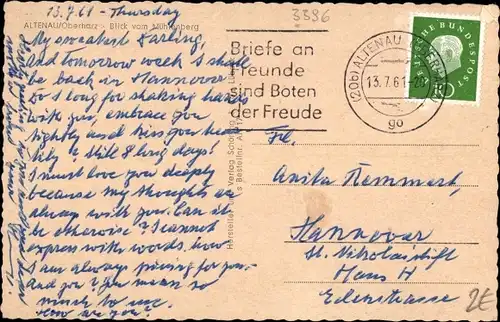 13.7.61 - Thursday
ALTENAU/Oberharz - Blick vom Mühlenberg
My sweetest Darling,
and tomorrow week I shall
be back in Hannover.
Do I long for shaking hands
with you, embrace you
tightly and kiss you
Still 8 long days!
I must love you deeply
because my thoughts are
always with you. Can it
be otherwise? I cannot
express with words, how
I am always pining for you.
And you? You mean so
much to me.
How are you?
3396
Briefe an
Freunde
sind Boten
der Freude
(20b) ALTENAU
13.7.61
go
DEUTSCHE BUNDESPOST
10
Frl.
Anita Remmert,
Hannover
St. Nikolaistift
Haus H
2€